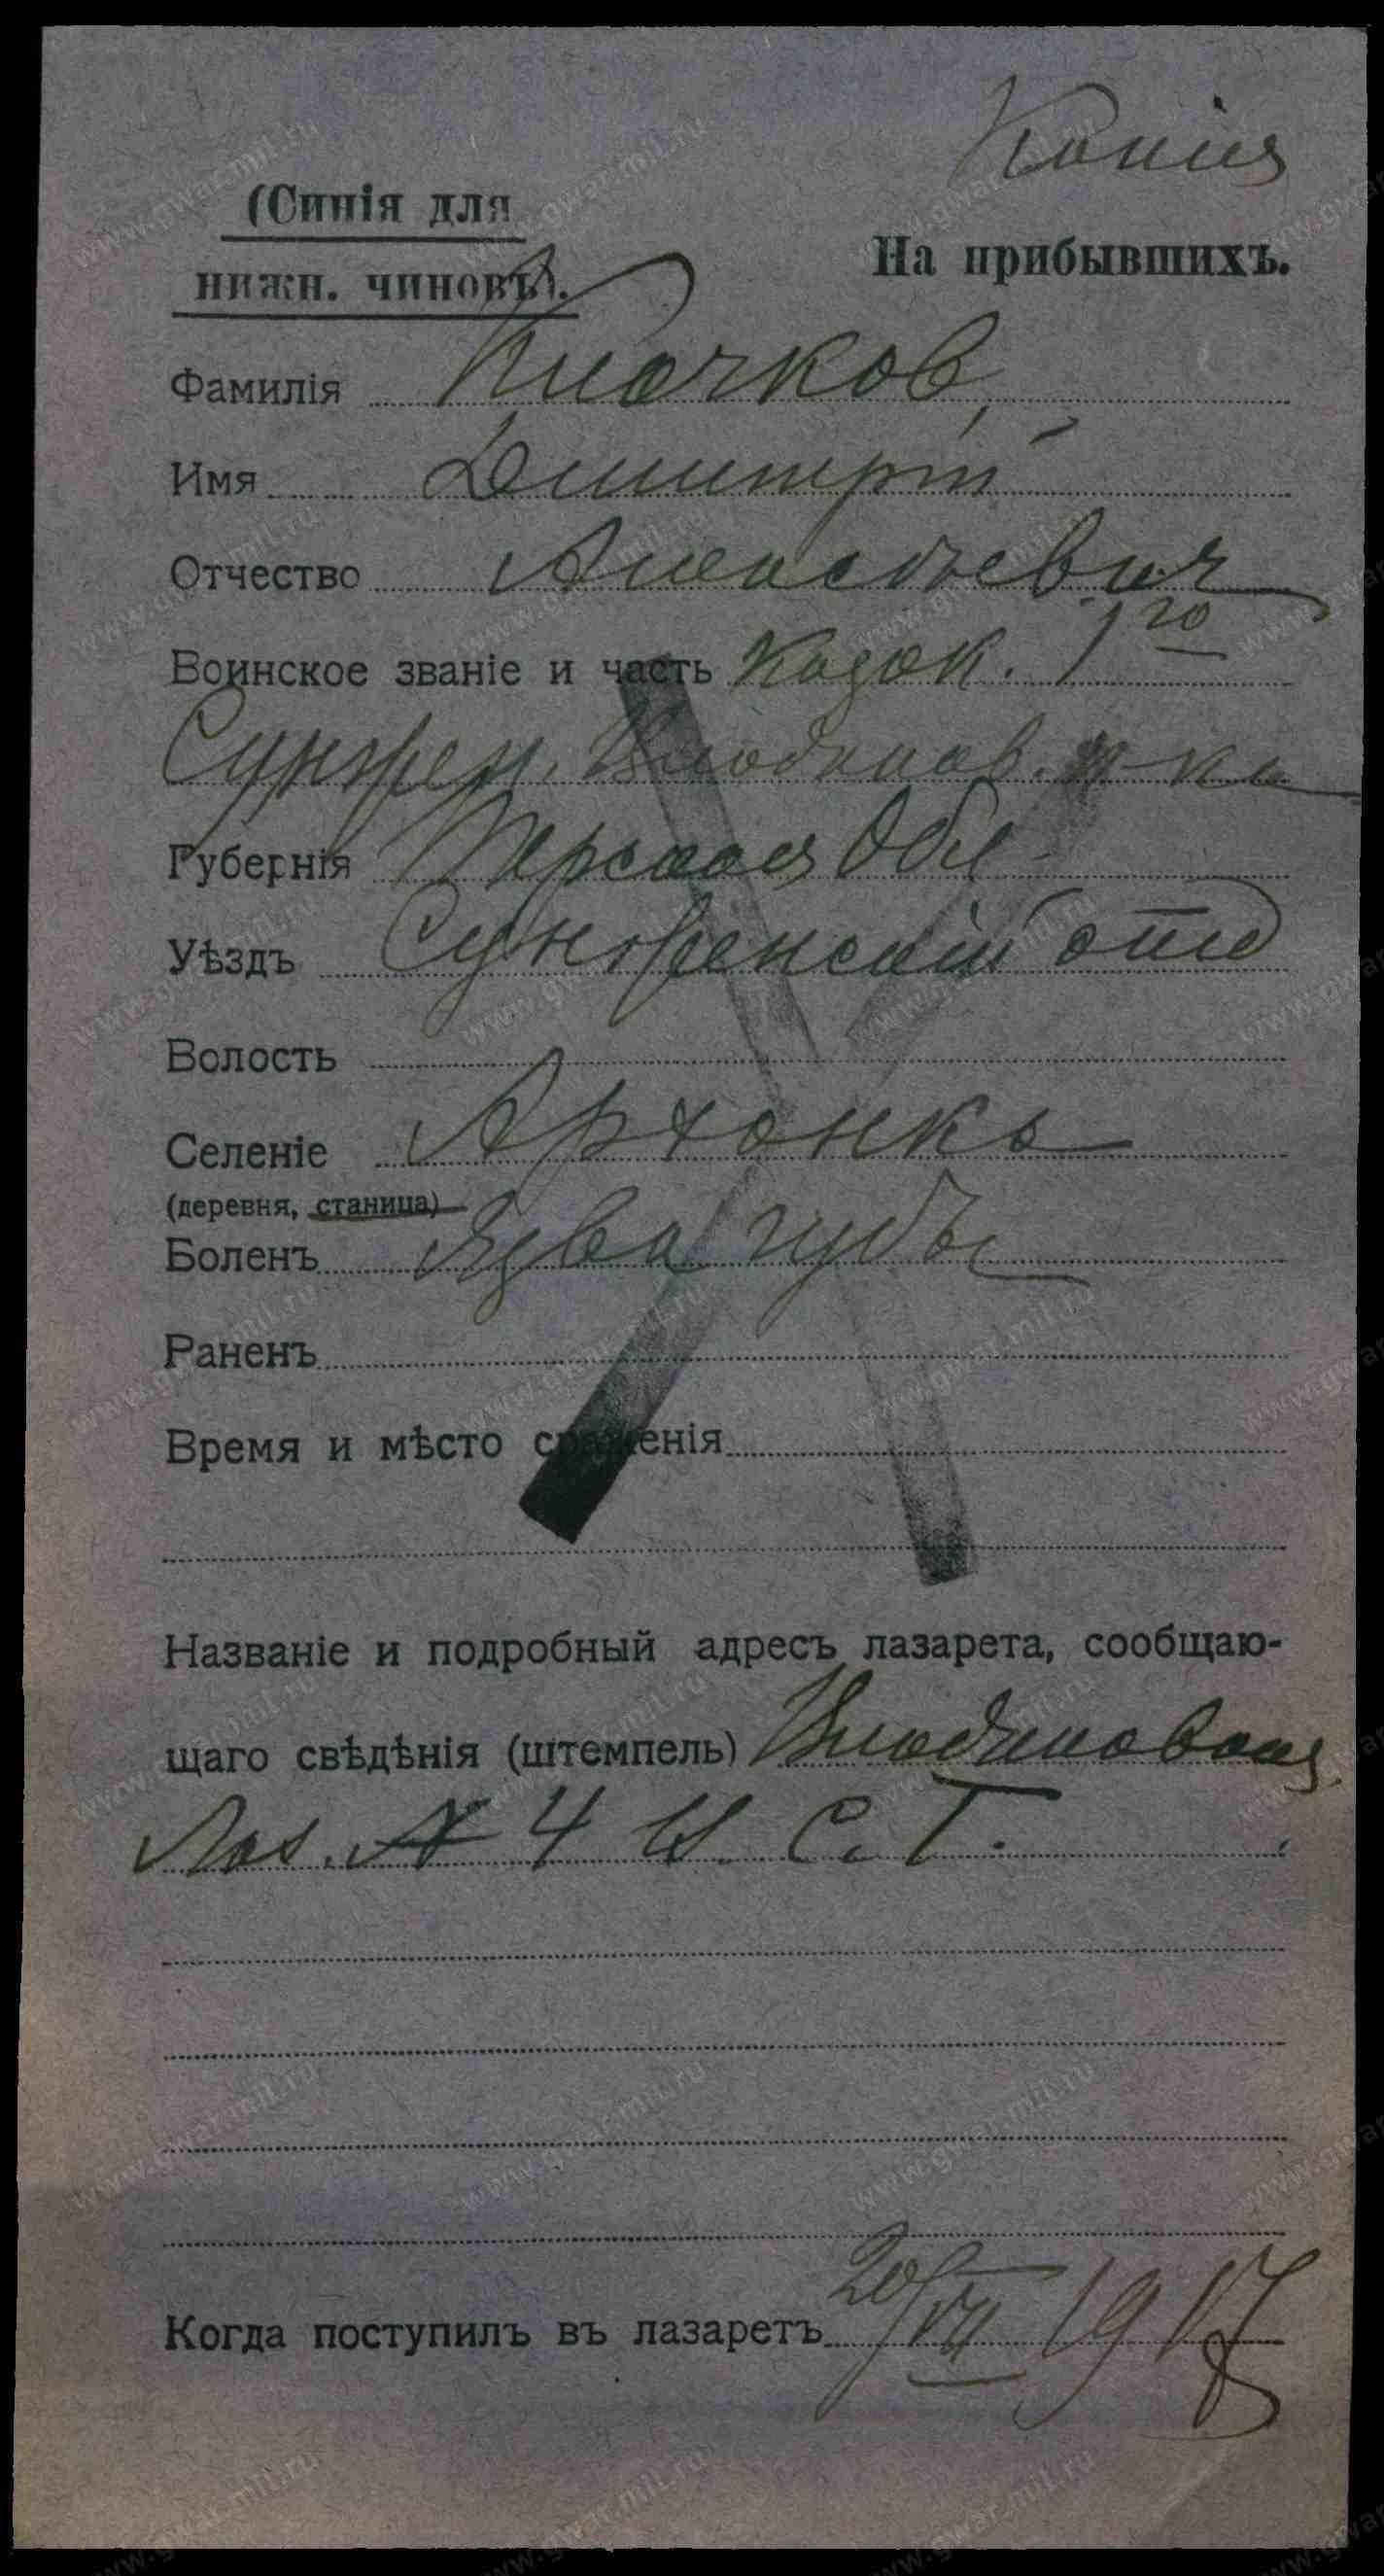 Копия
(Синія для
нижн. чиновъ).
На прибывшихъ.
Фамилія Клочков
Имя Дмитрій
Отчество Алексѣевич
Воинское званіе и часть Казак. 1го
Сунжен. Владикав. п-ка
Губернія Терская Обл
Уѣздъ Сунженскій отд
Волость
Селеніе Архонка
(деревня, станица)
Боленъ Язва губы
Раненъ
Время и мѣсто сраженія
Названіе и подробный адресъ лазарета, сообщаю-
щаго свѣдѣнія (штемпель)
Лаз. № 4 В. С. Г.
Когда поступилъ въ лазаретъ 20/VII 1917